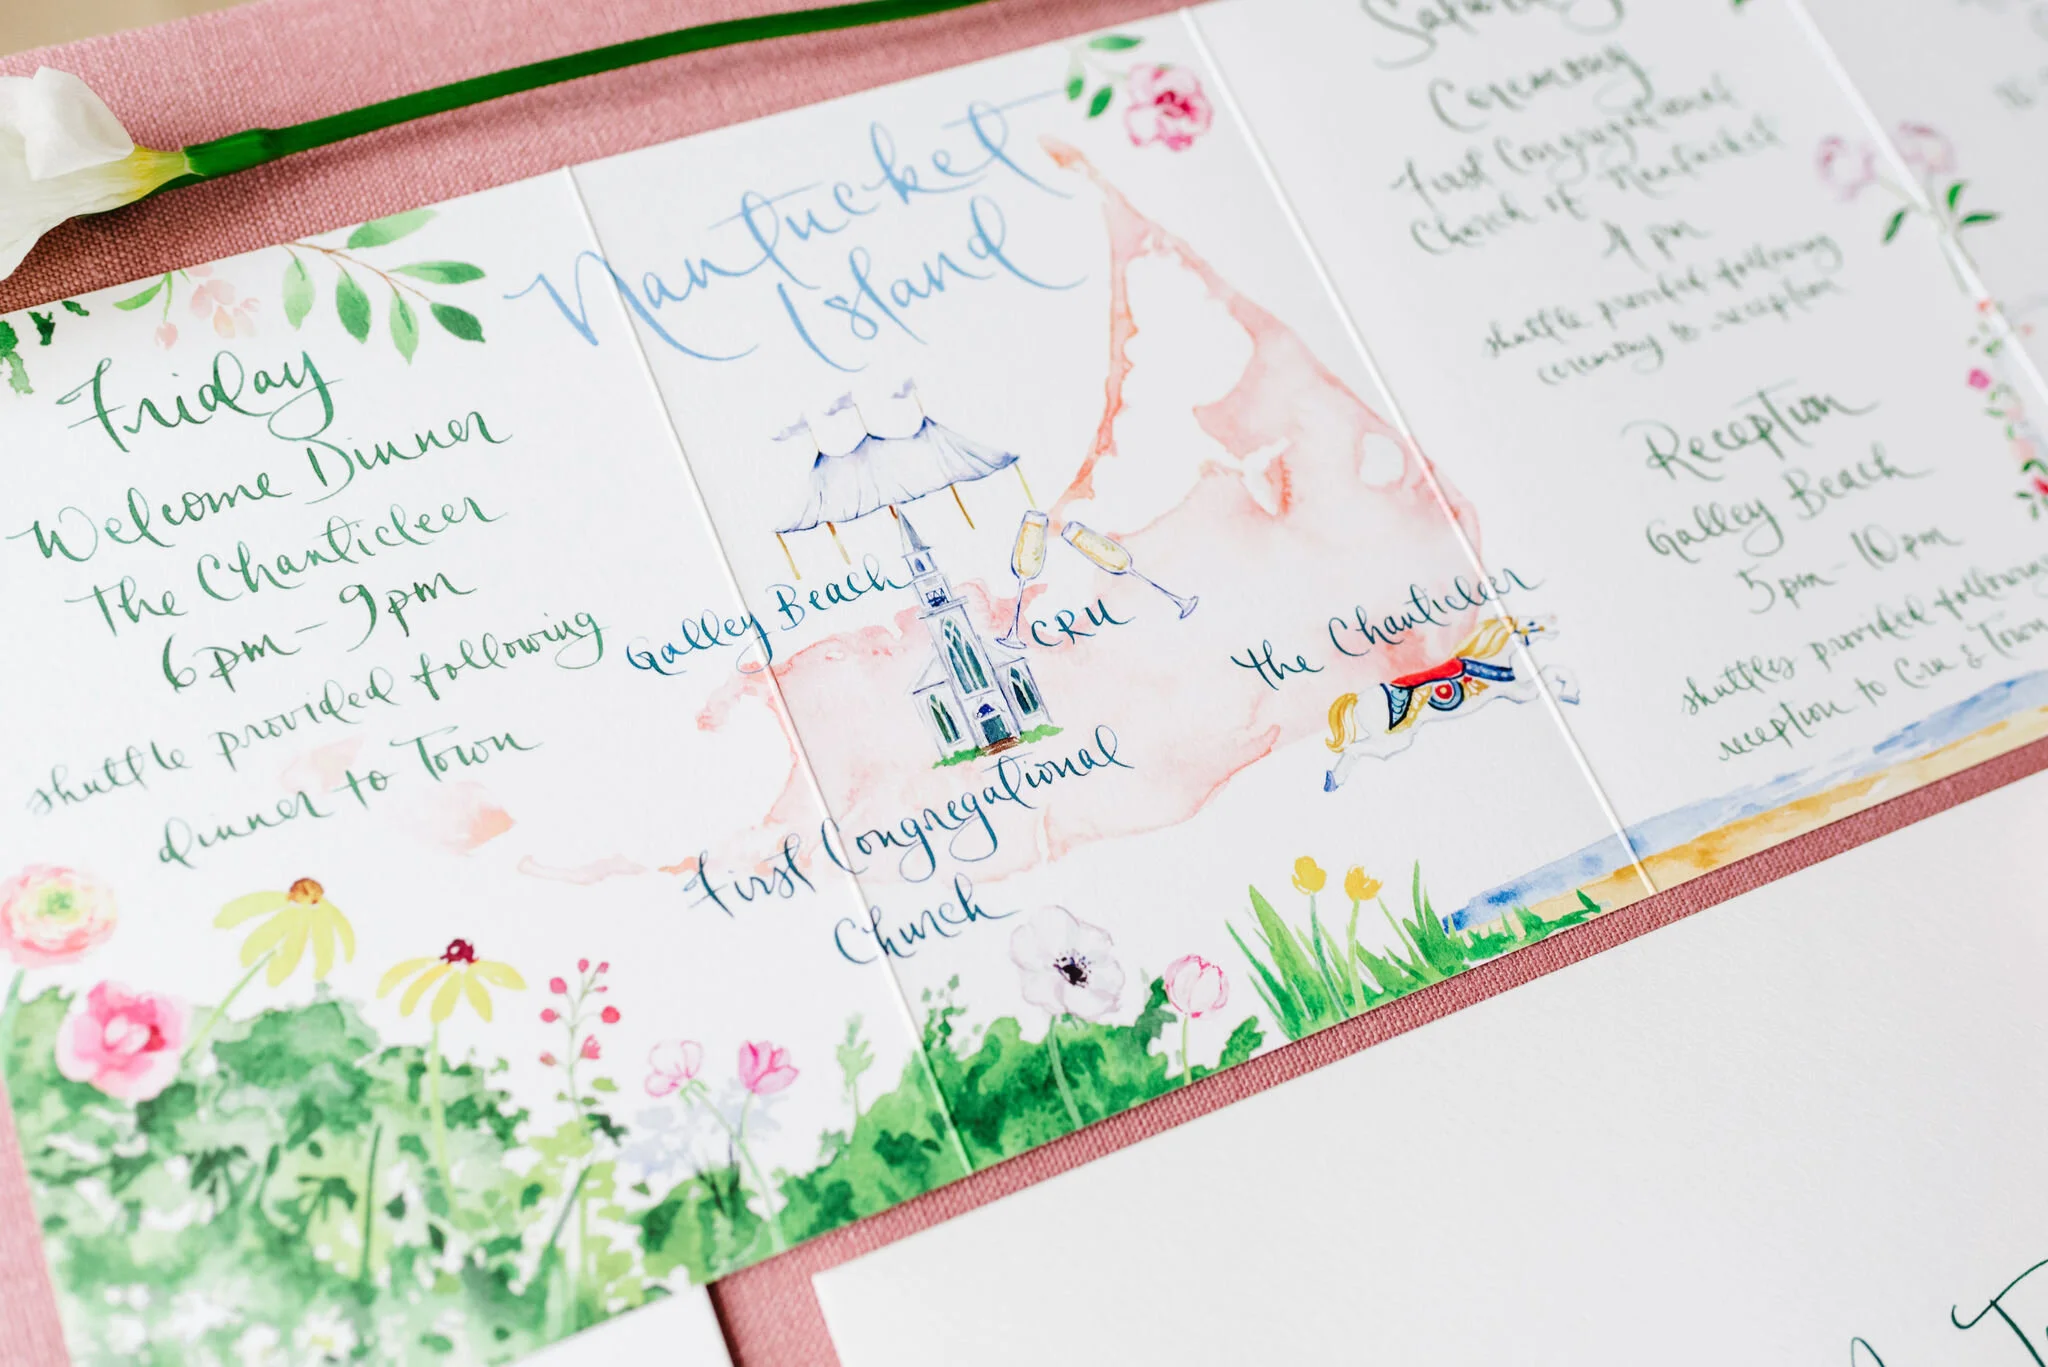 Friday
Welcome Dinner
The Chanticleer
6pm-9pm
shuttle provided following
dinner to Town
Nantucket
Island
Galley Beach
CRU
The Chanticleer
First Congregational
Church
Saturday
Ceremony
First Congregational
Church of Nantucket
4 pm
shuttle provided following
ceremony to reception
Reception
Galley Beach
5pm-10pm
shuttles provided following
reception to Cru & Town